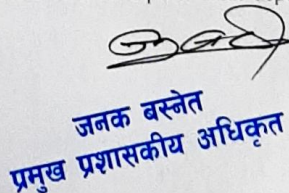 जनक बस्नेत
प्रमुख प्रशासकीय अधिकृत